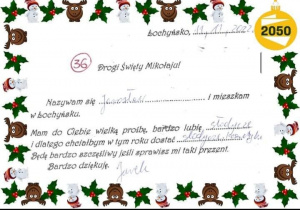 Łochyńsko,
2050
36 Drogi Święty Mikołaju!
Nazywam się Jarosław i mieszkam
w Łochyńsku.
Mam do Ciebie wielką prośbę, bardzo lubię słodycze
i dlatego chciałbym w tym roku dostać
Będę bardzo szczęśliwy jeśli sprawisz mi taki prezent.
Bardzo dziękuję. Jarek